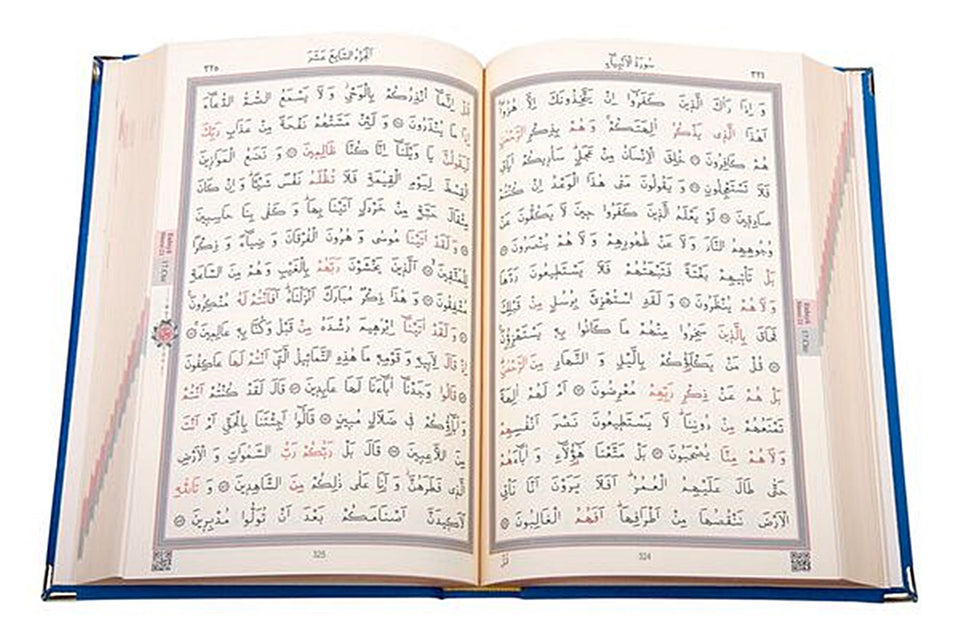 سُورَةُ الْاَنْبِيَاءِ
٣٢٤
وَ اِذَا رَاٰكَ الَّذِينَ كَفَرُوا اِنْ يَتَّخِذُونَكَ اِلَّا هُزُوًا
اَهٰذَا الَّذِى يَذْكُرُ اٰلِهَتَكُمْ وَهُمْ بِذِكْرِ الرَّحْمٰنِ
هُمْ كَافِرُونَ ۞ خُلِقَ الْاِنْسَانُ مِنْ عَجَلٍ سَاُرِيكُمْ اٰيَاتِى
فَلَا تَسْتَعْجِلُونِ ۞ وَ يَقُولُونَ مَتٰى هٰذَا الْوَعْدُ اِنْ كُنْتُمْ
صَادِقِينَ ۞ لَوْ يَعْلَمُ الَّذِينَ كَفَرُوا حِينَ لَا يَكُفُّونَ عَنْ
وُجُوهِهِمُ النَّارَ وَلَا عَنْ ظُهُورِهِمْ وَلَا هُمْ يُنْصَرُونَ ۞
بَلْ تَاْتِيهِمْ بَغْتَةً فَتَبْهَتُهُمْ فَلَا يَسْتَطِيعُونَ رَدَّهَا
وَلَا هُمْ يُنْظَرُونَ ۞ وَ لَقَدِ اسْتُهْزِئَ بِرُسُلٍ مِنْ قَبْلِكَ
فَحَاقَ بِالَّذِينَ سَخِرُوا مِنْهُمْ مَا كَانُوا بِهِ يَسْتَهْزِؤُنَ
۞ قُلْ مَنْ يَكْلَؤُكُمْ بِالَّيْلِ وَ النَّهَارِ مِنَ الرَّحْمٰنِ
بَلْ هُمْ عَنْ ذِكْرِ رَبِّهِمْ مُعْرِضُونَ ۞ اَمْ لَهُمْ اٰلِهَةٌ
تَمْنَعُهُمْ مِنْ دُونِنَا لَا يَسْتَطِيعُونَ نَصْرَ اَنْفُسِهِمْ
وَلَا هُمْ مِنَّا يُصْحَبُونَ ۞ بَلْ مَتَّعْنَا هٰٓؤُلَاءِ وَ اٰبَاءَهُمْ
حَتّٰى طَالَ عَلَيْهِمُ الْعُمُرُ اَفَلَا يَرَوْنَ اَنَّا نَاْتِى
الْاَرْضَ نَنْقُصُهَا مِنْ اَطْرَافِهَا اَفَهُمُ الْغَالِبُونَ ۞
324
قُلْ
اَلْجُزْءُ السَّابِعَ عَشَرَ
٣٢٥
قُلْ اِنَّمَا اُنْذِرُكُمْ بِالْوَحْىِ وَ لَا يَسْمَعُ الصُّمُّ الدُّعَاءَ
اِذَا مَا يُنْذَرُونَ ۞ وَ لَئِنْ مَسَّتْهُمْ نَفْحَةٌ مِنْ عَذَابِ رَبِّكَ
لَيَقُولُنَّ يَا وَيْلَنَا اِنَّا كُنَّا ظَالِمِينَ ۞ وَ نَضَعُ الْمَوَازِينَ
الْقِسْطَ لِيَوْمِ الْقِيٰمَةِ فَلَا تُظْلَمُ نَفْسٌ شَيْئًا وَ اِنْ كَانَ
مِثْقَالَ حَبَّةٍ مِنْ خَرْدَلٍ اَتَيْنَا بِهَا وَ كَفٰى بِنَا حَاسِبِينَ
۞ وَ لَقَدْ اٰتَيْنَا مُوسٰى وَ هٰرُونَ الْفُرْقَانَ وَ ضِيَاءً وَ ذِكْرًا
لِلْمُتَّقِينَ ۞ اَلَّذِينَ يَخْشَوْنَ رَبَّهُمْ بِالْغَيْبِ وَ هُمْ مِنَ السَّاعَةِ
مُشْفِقُونَ ۞ وَ هٰذَا ذِكْرٌ مُبَارَكٌ اَنْزَلْنَاهُ اَفَاَنْتُمْ لَهُ مُنْكِرُونَ
۞ وَ لَقَدْ اٰتَيْنَا اِبْرٰهِيمَ رُشْدَهُ مِنْ قَبْلُ وَ كُنَّا بِهِ عَالِمِينَ ۞
اِذْ قَالَ لِاَبِيهِ وَ قَوْمِهِ مَا هٰذِهِ التَّمَاثِيلُ الَّتِى اَنْتُمْ لَهَا عَاكِفُونَ
۞ قَالُوا وَجَدْنَا اٰبَاءَنَا لَهَا عَابِدِينَ ۞ قَالَ لَقَدْ كُنْتُمْ اَنْتُمْ
وَ اٰبَاؤُكُمْ فِى ضَلَالٍ مُبِينٍ ۞ قَالُوا اَجِئْتَنَا بِالْحَقِّ اَمْ اَنْتَ
مِنَ اللَّاعِبِينَ ۞ قَالَ بَلْ رَبُّكُمْ رَبُّ السَّمٰوَاتِ وَ الْاَرْضِ
الَّذِى فَطَرَهُنَّ وَ اَنَا عَلٰى ذٰلِكُمْ مِنَ الشَّاهِدِينَ ۞ وَ تَاللّٰهِ
لَاَكِيدَنَّ اَصْنَامَكُمْ بَعْدَ اَنْ تُوَلُّوا مُدْبِرِينَ ۞
325